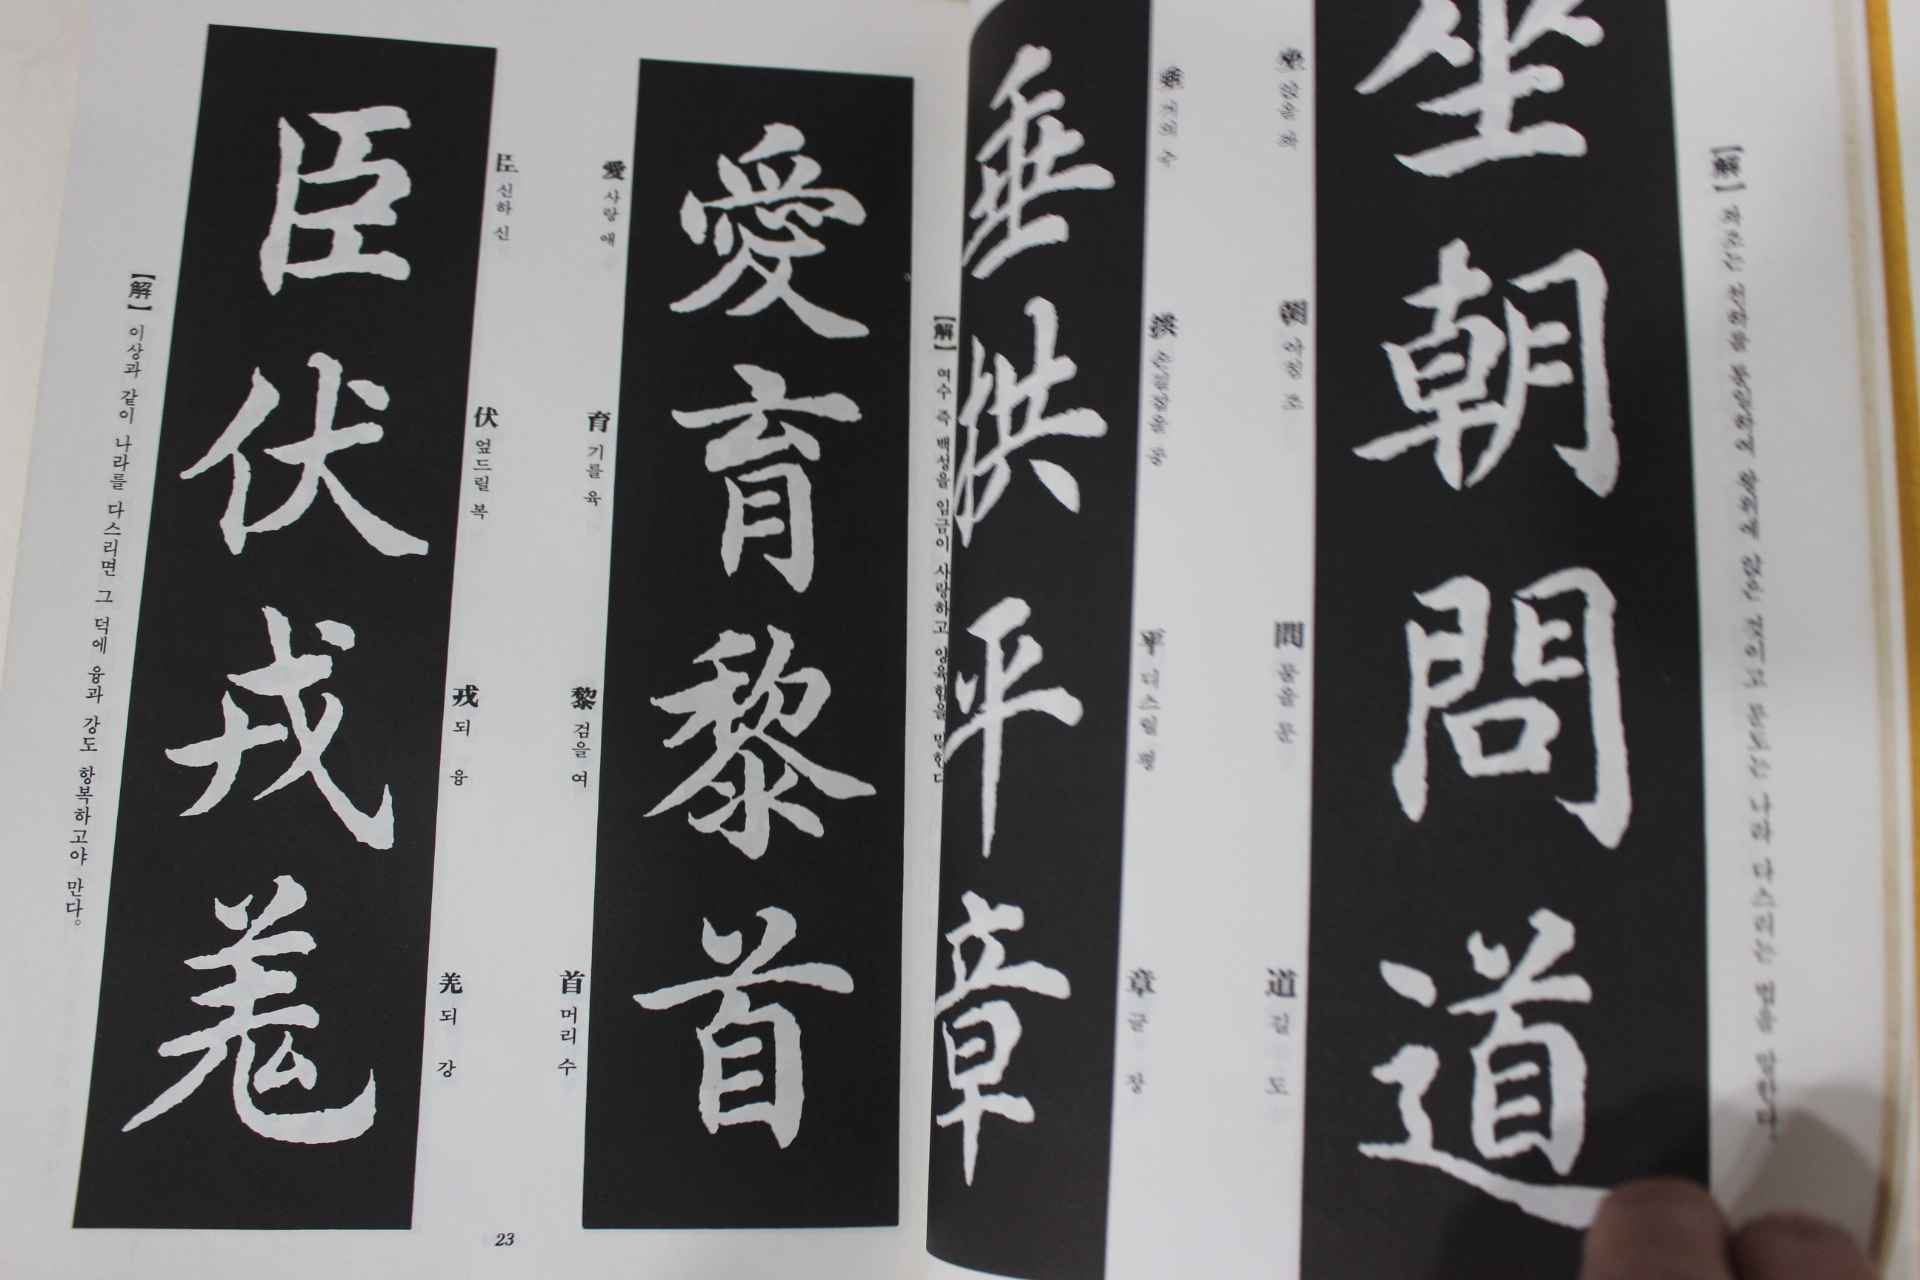 【解】 좌조는 천하를 통일하여 왕위에 앉은 것이고 문도는 나라 다스리는 법을 말한다.
坐朝問道
坐 앉을 좌
朝 아침 조
問 물을 문
道 길 도
垂 거의 수
拱 손길잡을 공
平 다스릴 평
章 글 장
垂拱平章
【解】 여수 즉 백성을 임금이 사랑하고 양육함을 말한다
愛育黎首
愛 사랑 애
育 기를 육
黎 검을 여
首 머리 수
臣 신하 신
伏 엎드릴 복
戎 되 융
羌 되 강
臣伏戎羌
【解】 이상과 같이 나라를 다스리면 그 덕에 융과 강도 항복하고야 만다。
23